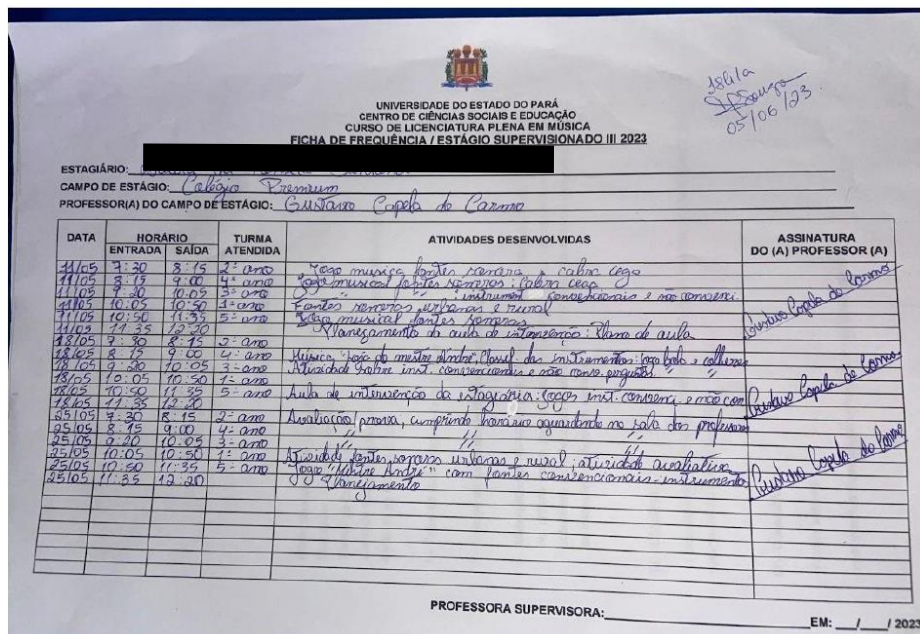 18h12
05/06/23
UNIVERSIDADE DO ESTADO DO PARÁ
CENTRO DE CIÊNCIAS SOCIAIS E EDUCAÇÃO
CURSO DE LICENCIATURA PLENA EM MÚSICA
FICHA DE FREQUÊNCIA / ESTÁGIO SUPERVISIONADO III 2023
ESTAGIÁRIO:
CAMPO DE ESTÁGIO: Colégio Premium
PROFESSOR(A) DO CAMPO DE ESTÁGIO: Gustavo Capela do Carmo
DATA HORÁRIO TURMA ATENDIDA ATIVIDADES DESENVOLVIDAS ASSINATURA DO (A) PROFESSOR (A)
ENTRADA SAÍDA
11/05 7:30 8:15 2º ano Jogo musica fontes sonora cabra cega
11/05 8:15 9:00 4º ano Jogo musical fontes sonoros: Cabra cega
11/05 9:20 10:05 3º ano " " instrument convencionais e não convenci.
11/05 10:05 10:50 1º ano Fontes sonoras urbanas e rural
11/05 10:50 11:35 5º ano Jogo musical fontes sonoras
11/05 11:35 12:20 Planejamento da aula de intervenção: Plano de aula
Gustavo Capela do Carmo
18/05 7:30 8:15 2º ano
18/05 8:15 9:00 4º ano Musica "Loja do mestre André", Classif. dos instrumentos: Jogo bola e colheres
18/05 9:20 10:05 3º ano Atividade sobre inst. convencionais e não conv. perguntas " "
18/05 10:05 10:50 1º ano
18/05 10:50 11:35 5º ano Aula de intervenção da estagiária: jogos inst. convenci e não con
18/05 11:35 12:20
Gustavo Capela do Carmo
25/05 7:30 8:15 2º ano Avaliação/prova, cumprindo horário aguardando na sala dos professores
25/05 8:15 9:00 4º ano " "
25/05 9:20 10:05 3º ano " "
25/05 10:05 10:50 1º ano Atividade fontes sonoras urbanas e rural, atividade avaliativa
25/05 10:50 11:35 5º ano Jogo "Mestre André" com fontes convencionais-instrumento
25/05 11:35 12:20 Planejamento
Gustavo Capela do Carmo
PROFESSORA SUPERVISORA:
EM: __/__/ 2023